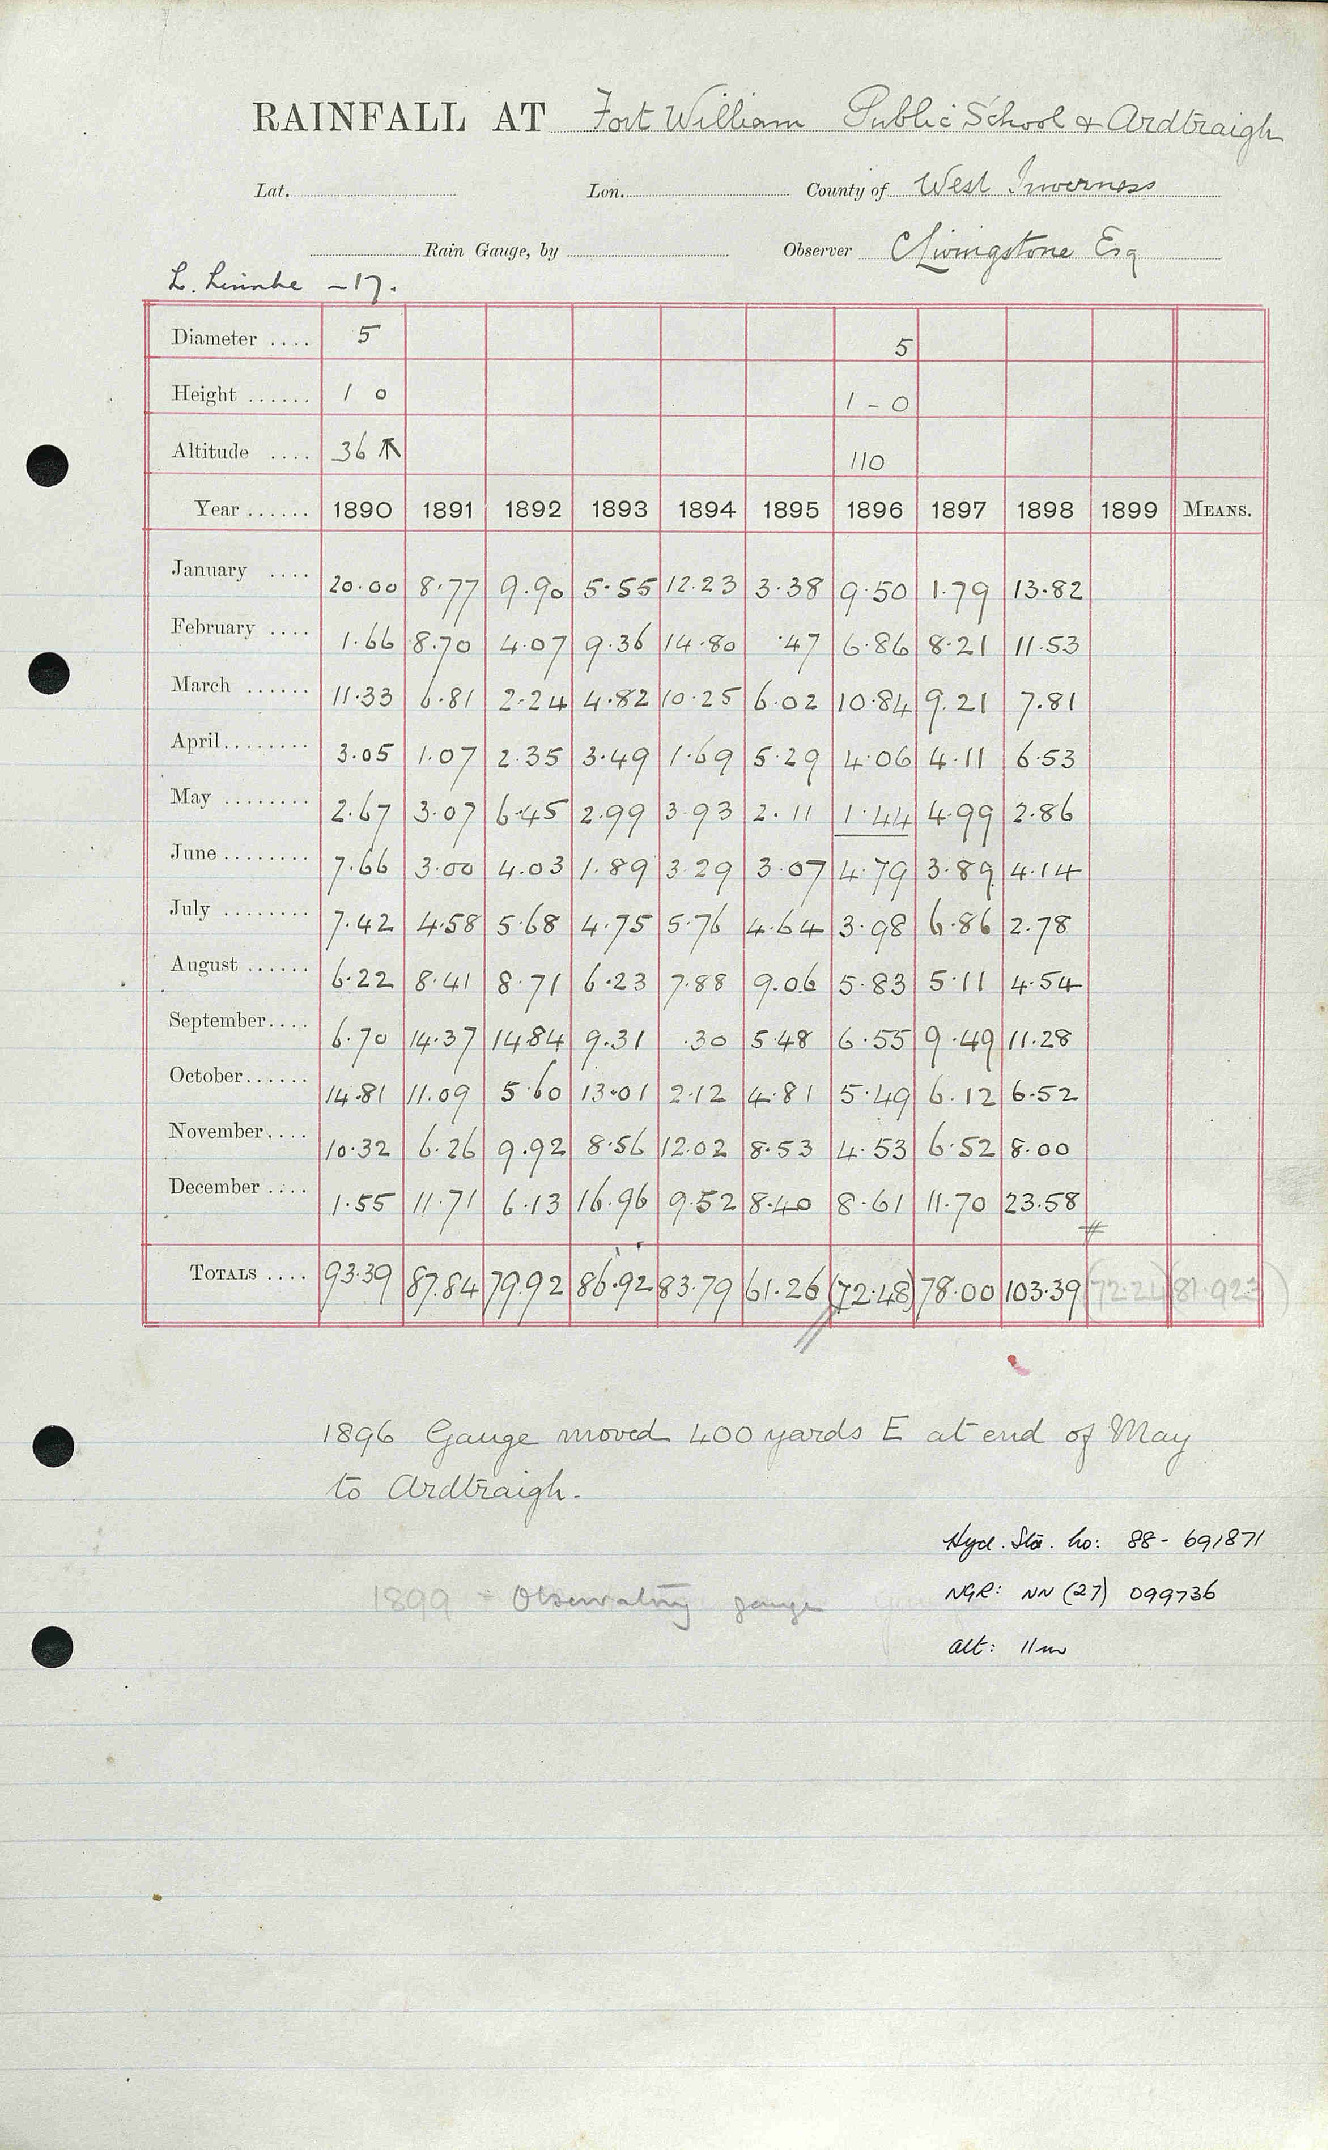 RAINFALL AT Fort William Public School & Ardtraigh
Lat. Lon. County of West Inverness
Rain Gauge, by Observer C Livingstone Esq
L. Linnhe - 17.
Diameter .... 5 5
Height ...... 1 0 1 - 0
Altitude .... 36 ↑ 110
Year ...... 1890 1891 1892 1893 1894 1895 1896 1897 1898 1899 MEANS.
January .... 20.00 8.77 9.90 5.55 12.23 3.38 9.50 1.79 13.82
February .... 1.66 8.70 4.07 9.36 14.80 .47 6.86 8.21 11.53
March ...... 11.33 6.81 2.24 4.82 10.25 6.02 10.84 9.21 7.81
April........ 3.05 1.07 2.35 3.49 1.69 5.29 4.06 4.11 6.53
May ........ 2.67 3.07 6.45 2.99 3.93 2.11 1.44 4.99 2.86
June ........ 7.66 3.00 4.03 1.89 3.29 3.07 4.79 3.89 4.14
July ........ 7.42 4.58 5.68 4.75 5.76 4.64 3.98 6.86 2.78
August ...... 6.22 8.41 8.71 6.23 7.88 9.06 5.83 5.11 4.54
September.... 6.70 14.37 14.84 9.31 .30 5.48 6.55 9.49 11.28
October...... 14.81 11.09 5.60 13.01 2.12 4.81 5.49 6.12 6.52
November.... 10.32 6.26 9.92 8.56 12.02 8.53 4.53 6.52 8.00
December .... 1.55 11.71 6.13 16.96 9.52 8.40 8.61 11.70 23.58
#
TOTALS .... 93.39 87.84 79.92 86.92 83.79 61.26 (72.48) 78.00 103.39 (72.24) (81.923)
1896 Gauge moved 400 yards E at end of May
to Ardtraigh.
Hyd. Sta. No: 88 - 691871
1899 - Observatory gauge
NGR: NN (27) 099736
alt: 11m